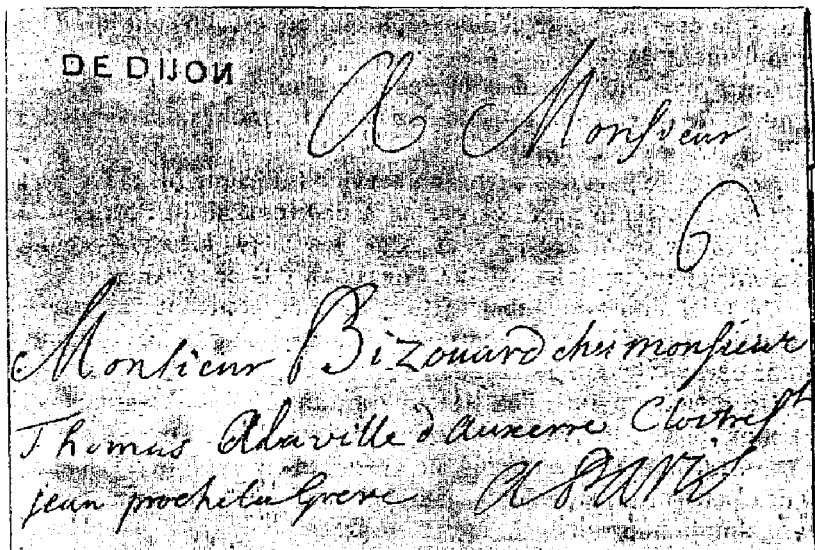 DE DIJON
A Monsieur
6
Monsieur Bizouard ches monsieur
Thomas Alaville d'auxerre Cloitre St
jean proche la Greve A PARIS